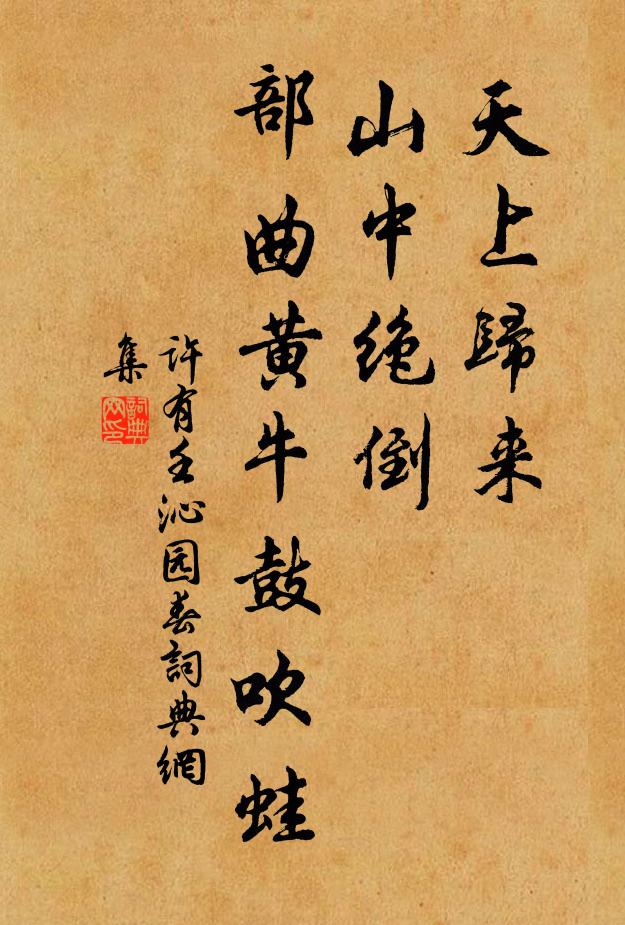 天上歸来
山中绝倒
部曲黄牛鼓吹蛙
许有壬沁园春詞典網
集
詞典网印